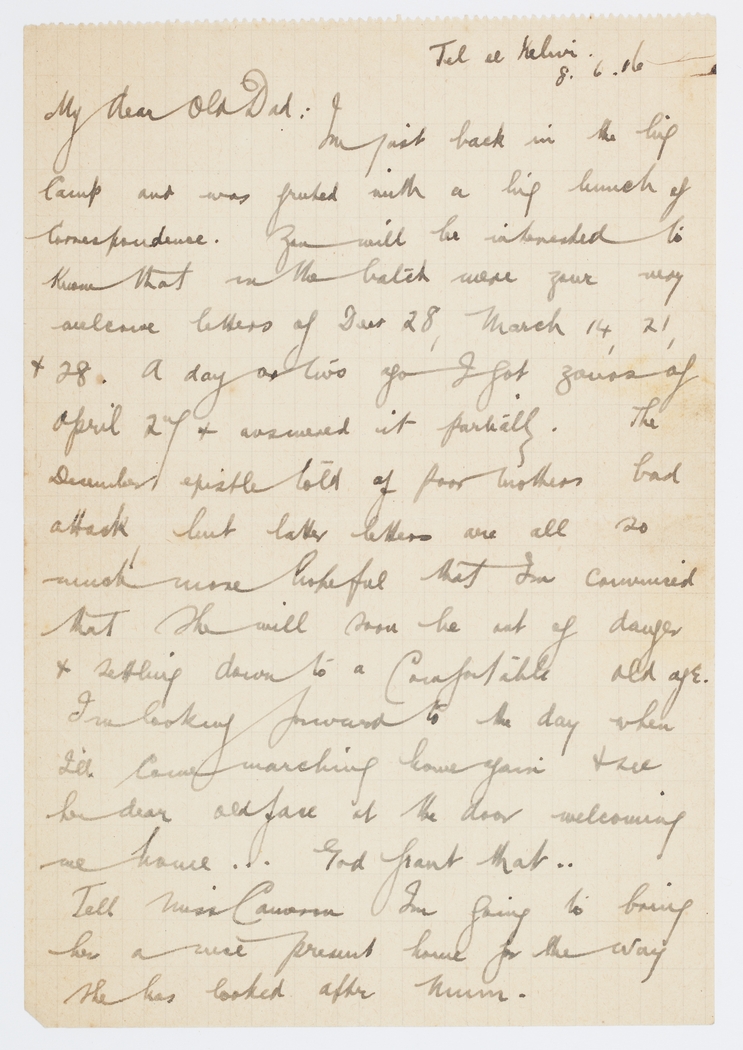 Tel el Kebir.
8.6.16
My dear Old Dad:
I'm just back in the big
Camp and was greeted with a big bunch of
Correspondence. You will be interested to
Know that in the batch were your very
welcome letters of Decr 28, March 14, 21,
+ 28. A day or two ago I got yours of
April 2nd + answered it partially. The
December epistle told of poor mothers bad
attack, but latter letters are all so
much more hopeful that I'm convinced
that she will soon be out of danger
+ settling down to a Comfortable old age.
I'm looking forward to the day when
I'll come marching home again + see
her dear old face at the door welcoming
me home... God grant that..
Tell Miss Cameron I'm going to bring
her a nice present home for the way
she has looked after Mum.